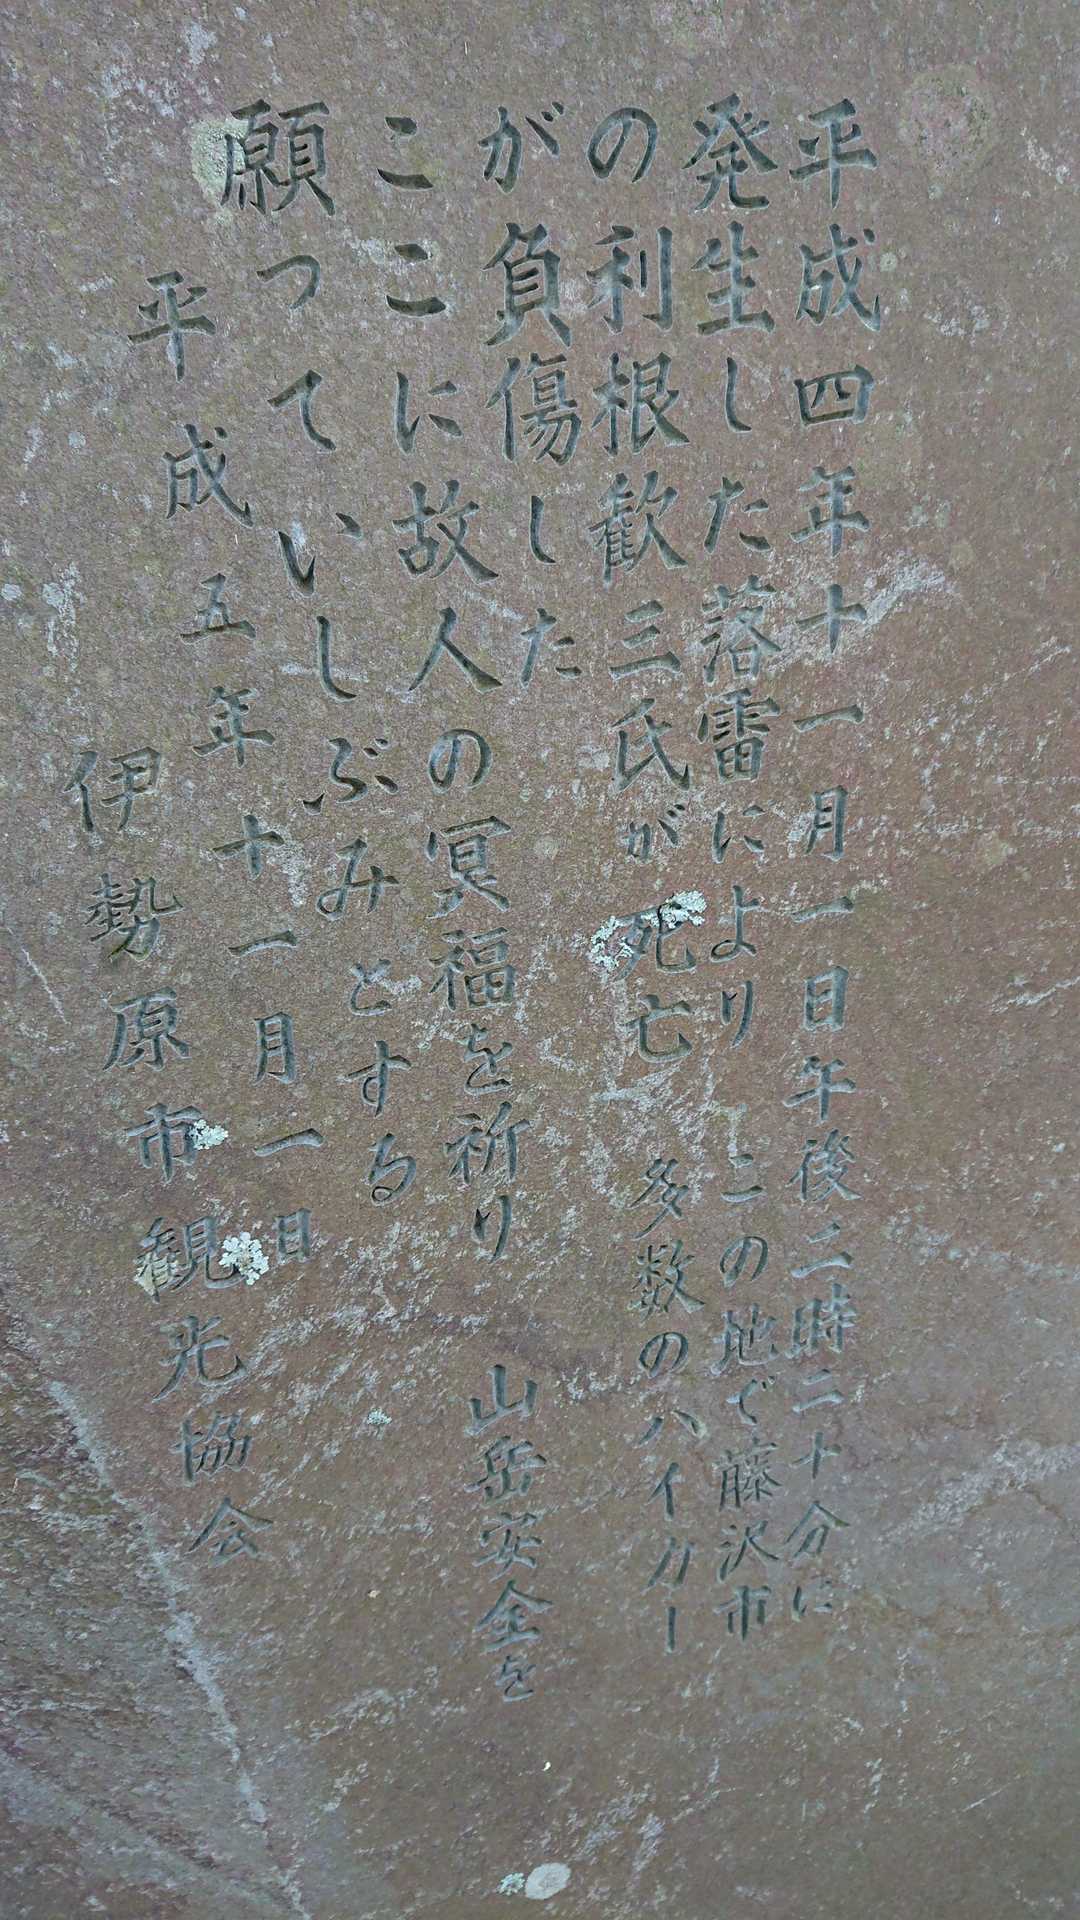 平成四年十一月一日午後二時二十分に
発生した落雷により この地で藤沢市
の利根歓三氏が死亡 多数のハイカー
が負傷した
ここに故人の冥福を祈り 山岳安全を
願っていしぶみとする
平成五年十一月一日
伊勢原市観光協会